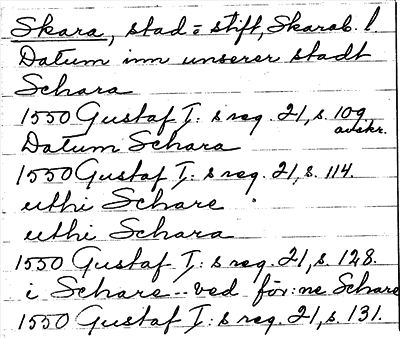 Skara, stad o stift, Skarab. l
Datum inn unserer stadt
Schara
1550 Gustaf I: s reg. 21, s. 109
avskr.
Datum Schara
1550 Gustaf I: s reg. 21, s. 114.
uthi Schare
uthi Schara
1550 Gustaf I: s reg. 21, s. 128.
i Schare -- ved för: ne Schare
1550 Gustaf I: s reg. 21, s. 131.